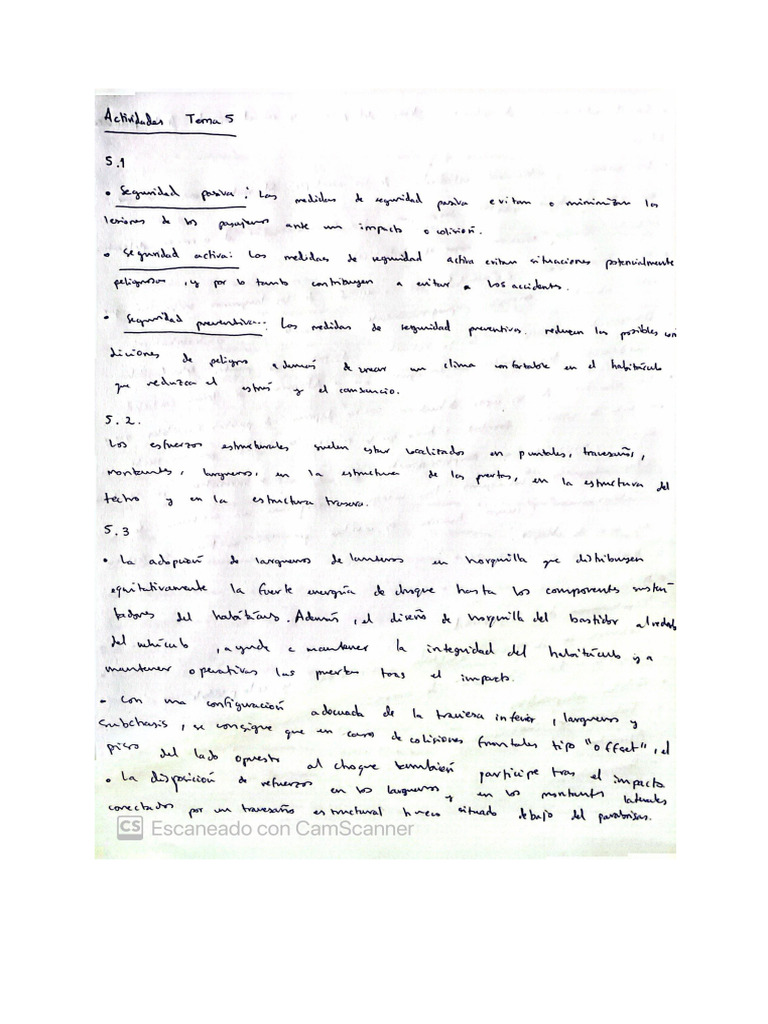 Actividades Tema 5
5.1
• Seguridad pasiva: Las medidas de seguridad pasiva evitan o minimizan las
lesiones de los pasajeros ante un impacto o colisión.
• Seguridad activa: Las medidas de seguridad activa evitan situaciones potencialmente
peligrosas, y por lo tanto contribuyen a evitar a los accidentes.
• Seguridad preventiva: Las medidas de seguridad preventiva reducen las posibles con
diciones de peligro además de crear un clima confortable en el habitáculo
que reduzca el estrés y el cansancio.
5.2.
Los esfuerzos estructurales suelen estar localizados en puntales, travesaños,
montantes, largueros, en la estructura de las puertas, en la estructura del
techo y en la estructura trasera.
5.3
• La adopción de largueros delanteros en horquilla que distribuyen
equitativamente la fuerte energía de choque hasta los componentes susten-
tadores del habitáculo. Además, el diseño de horquilla del bastidor alrededor
del vehículo, ayude a mantener la integridad del habitáculo y a
mantener operativas las puertas tras el impacto.
- Con una configuración adecuada de la traviesa inferior, largueros y
subchasis, se consigue que en caso de colisiones frontales tipo "offset", el
piso del lado opuesto al choque también participe tras el impacto
• La disposición de refuerzos en los largueros y en los montantes laterales
conectados por un travesaño estructural hueco situado debajo del parabrisas.
CS Escaneado con CamScanner